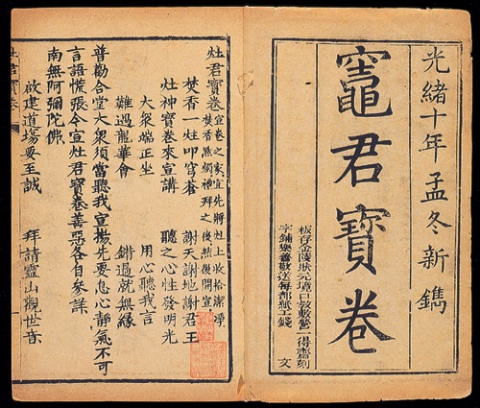 光緒十年孟冬新鐫
竈君寶卷
板存金陵狀元境口一得齋刻
字鋪樂善敬送每部紙工錢 文
灶君寶卷 宣卷之家宜先將灶上收拾潔淨
焚香點燭禮拜之後然後開宣
焚香一炷叩穹蒼 謝天謝地謝君王
灶神寶卷來宣講 聽之心性發明光
大衆端正坐 用心聽我言
難過龍華會 錯過就無緣
普勸合堂大衆須當聽我宣揚先要息心靜氣不可
言語慌張今宣灶君寶卷善惡各自參詳
南無阿彌陀佛
啟建道場要至誠 拜請靈山觀世音
灶君寶卷